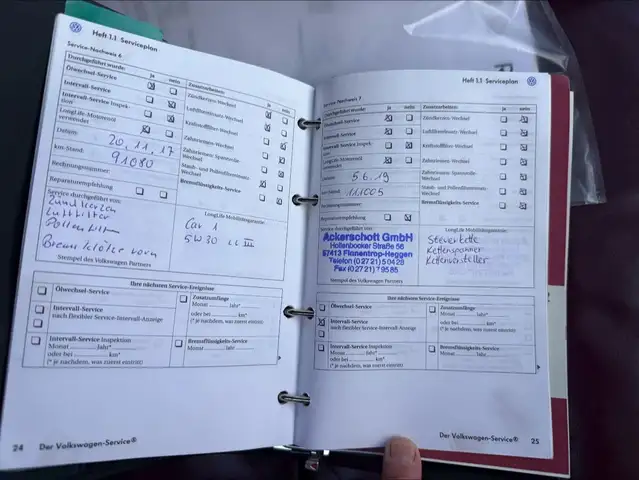 Heft 1.1 Serviceplan
Service-Nachweis 6
Durchgeführt wurde: ja nein
Zusatzarbeiten: ja nein
Ölwechsel-Service
Zündkerzen-Wechsel
Intervall-Service
Luftfiltereinsatz-Wechsel
Intervall-Service Inspek-
tion
Kraftstofffilter-Wechsel
LongLife-Motorenöl
verwendet
Zahnriemen-Wechsel
Datum: 20.11.17
Zahnriemen-Spannrolle-
Wechsel
km-Stand: 91080
Staub- und Pollenfiltereinsatz-
Wechsel
Rechnungsnummer:
Bremsflüssigkeits-Service
Reparaturempfehlung
Service durchgeführt von:
LongLife Mobilitätsgarantie:
Zündkerzen
Luftfilter
Pollenfilter
Bremsklötze vorn
5W30 LL III
Stempel des Volkswagen Partners
Ihre nächsten Service-Ereignisse
Ölwechsel-Service
Zusatzumfänge
Monat Jahr
oder bei km*
(* je nachdem, was zuerst eintritt)
Intervall-Service
nach flexibler Service-Intervall-Anzeige
Intervall-Service Inspektion
Monat Jahr
oder bei km*
(* je nachdem, was zuerst eintritt)
Bremsflüssigkeits-Service
Monat Jahr
24 Der Volkswagen-Service®
Heft 1.1 Serviceplan
Service-Nachweis 7
Durchgeführt wurde: ja nein
Zusatzarbeiten: ja nein
Ölwechsel-Service
Zündkerzen-Wechsel
Intervall-Service
Luftfiltereinsatz-Wechsel
Intervall-Service Inspek-
tion
Kraftstofffilter-Wechsel
LongLife-Motorenöl
verwendet
Zahnriemen-Wechsel
Datum: 5.6.19
Zahnriemen-Spannrolle-
Wechsel
km-Stand: 111005
Staub- und Pollenfiltereinsatz-
Wechsel
Rechnungsnummer:
Bremsflüssigkeits-Service
Reparaturempfehlung
Service durchgeführt von:
LongLife Mobilitätsgarantie:
Ackerschott GmbH
Hollenbocker Straße 56
57413 Finnentrop-Heggen
Telefon (02721) 50428
Fax (02721) 79585
Steuerkette
Kettenspanner
Kettenversteller
Stempel des Volkswagen Partners
Ihre nächsten Service-Ereignisse
Ölwechsel-Service
Zusatzumfänge
Monat Jahr
oder bei km*
(* je nachdem, was zuerst eintritt)
Intervall-Service
nach flexibler Service-Intervall-Anzeige
Intervall-Service Inspektion
Monat Jahr
oder bei km*
(* je nachdem, was zuerst eintritt)
Bremsflüssigkeits-Service
Monat Jahr
Der Volkswagen-Service® 25